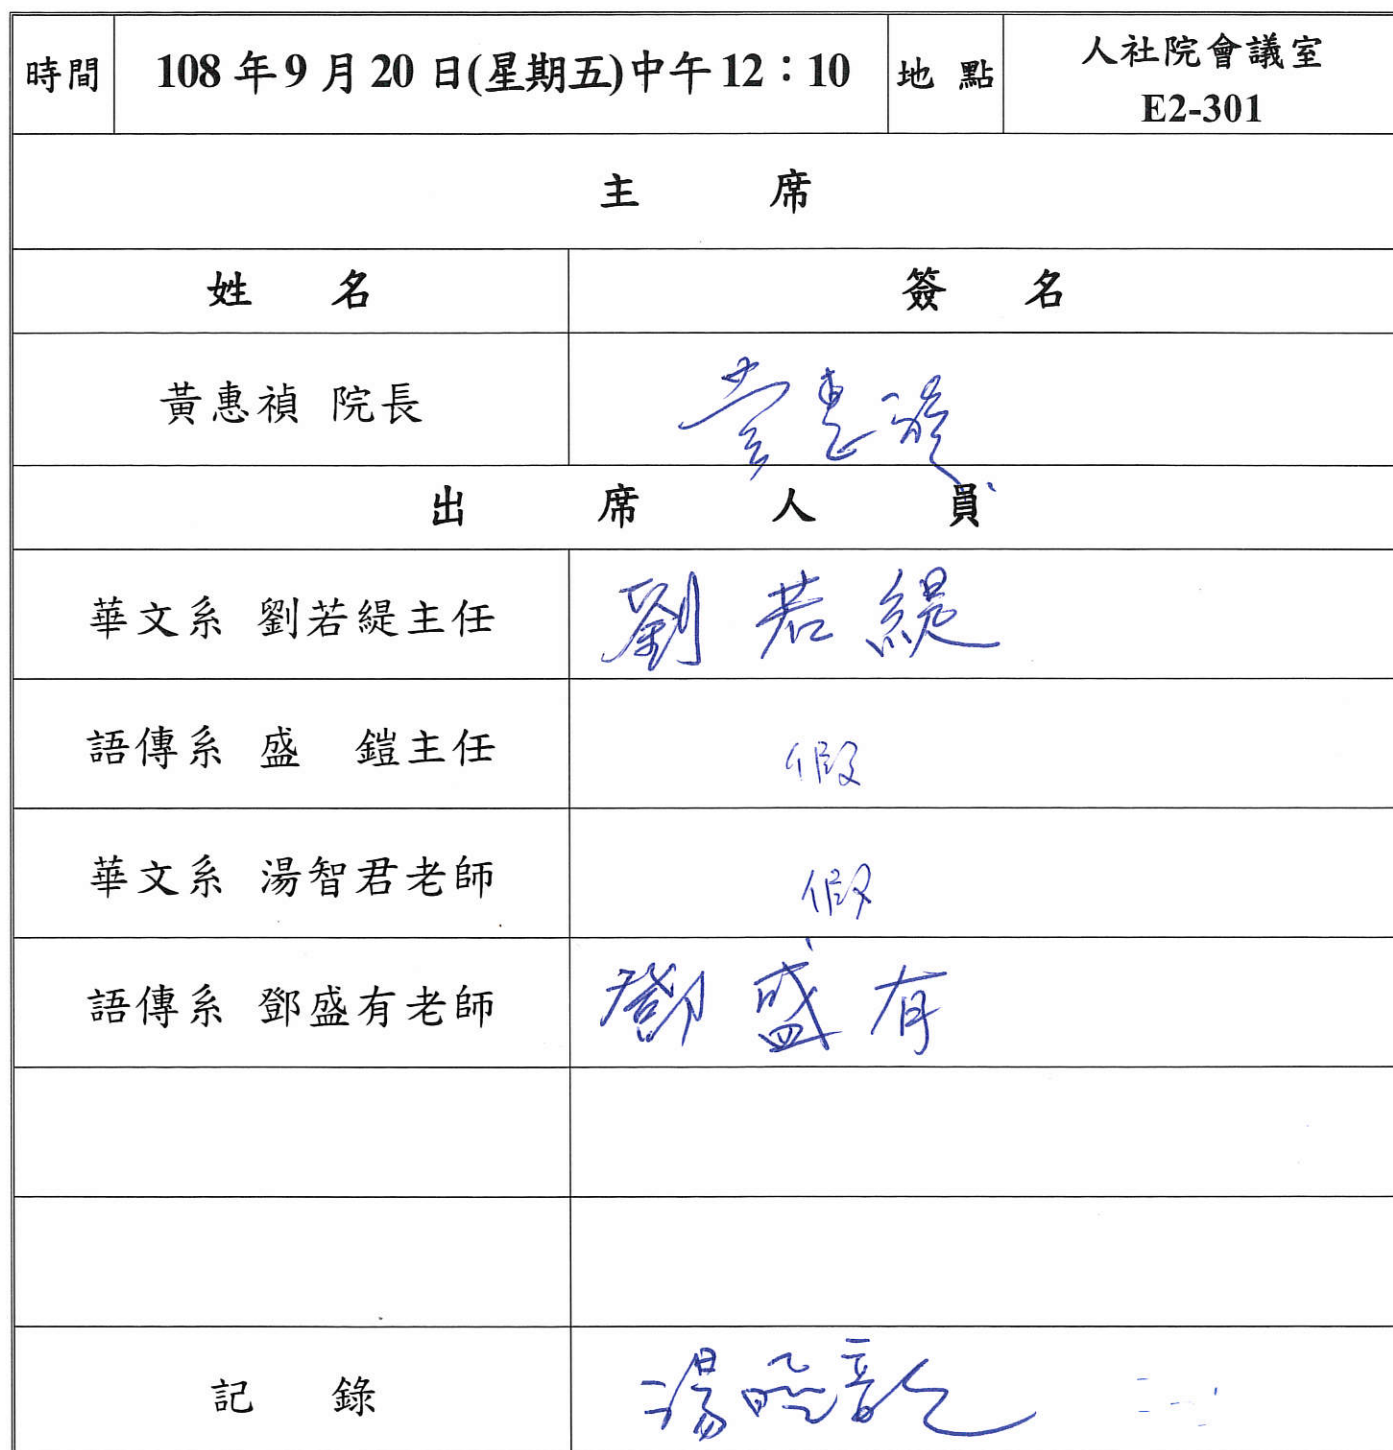 時間 108年9月20日(星期五)中午12：10 地點 人社院會議室
E2-301
主席
姓名 簽名
黃惠禎 院長 黃惠禎
出席人員
華文系 劉若緹主任 劉若緹
語傳系 盛 鎧主任 假
華文系 湯智君老師 假
語傳系 鄧盛有老師 鄧盛有
記錄 湯